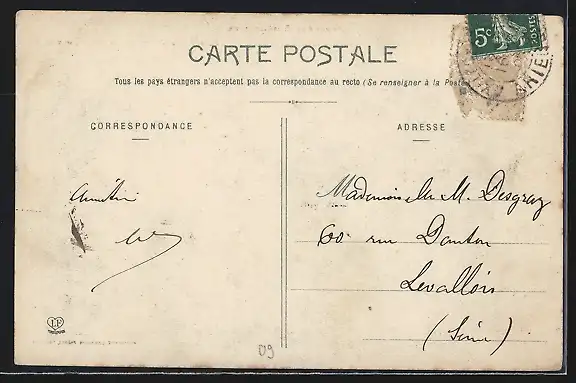 CARTE POSTALE
Tous les pays étrangers n'acceptent pas la correspondance au recto (Se renseigner à la Post
5c
POSTES
CORRESPONDANCE
ADRESSE
Amitié
Mademoiselle M. Desgrez
60 rue Danton
Levallois
(Seine)
LF
09